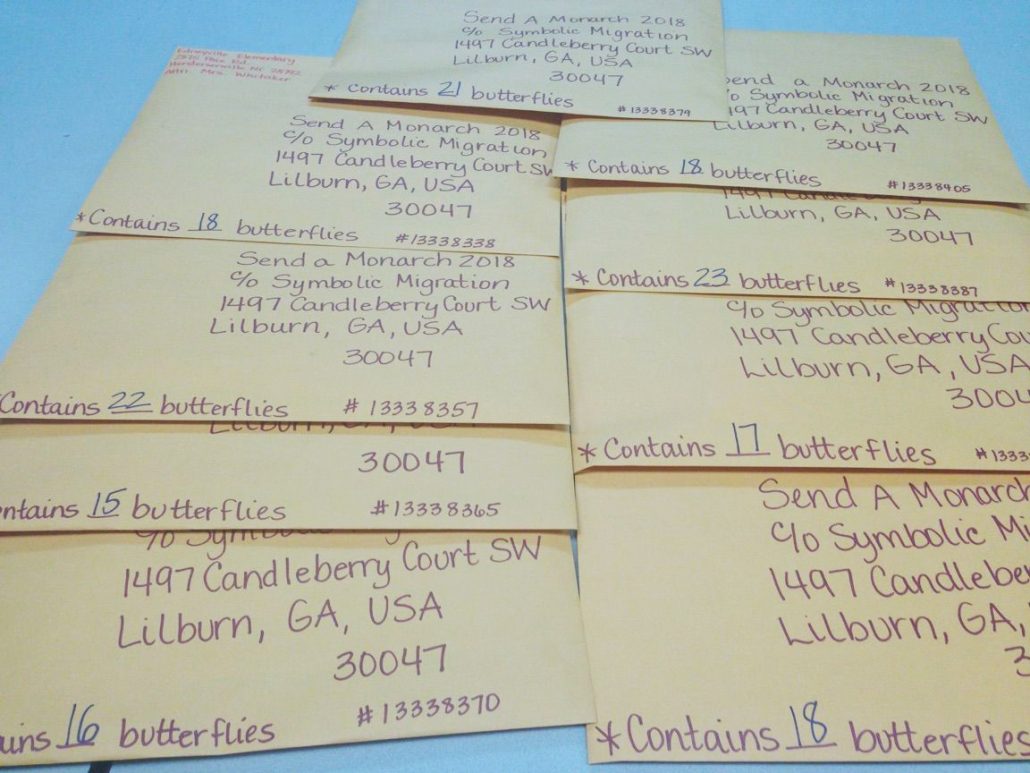 Send A Monarch 2018
c/o Symbolic Migration
1497 Candleberry Court SW
Lilburn, GA, USA
30047
* Contains 21 butterflies #13338379
Edneyville Elementary
Attn. Mrs. Whitaker
Send A Monarch 2018
c/o Symbolic Migration
1497 Candleberry Court SW
Lilburn, GA, USA
30047
*Contains 18 butterflies #13338338
Send a Monarch 2018
c/o Symbolic Migration
1497 Candleberry Court SW
Lilburn, GA, USA
30047
Contains 22 butterflies # 13338357
30047
ntains 15 butterflies #13338365
1497 Candleberry Court SW
Lilburn, GA, USA
30047
ains 16 butterflies #13338370
end a Monarch 2018
o Symbolic Migration
497 Candleberry Court SW
Lilburn, GA, USA
30047
* Contains 18 butterflies #13338405
Lilburn, GA, USA
30047
* Contains 23 butterflies #13338387
c/o Symbolic Migration
1497 Candleberry Cou
Lilburn, GA, USA
3004
* Contains 17 butterflies #1333
Send A Monarch
c/o Symbolic Mi
1497 Candlebe
Lilburn, GA,
3
*Contains 18 butterflies